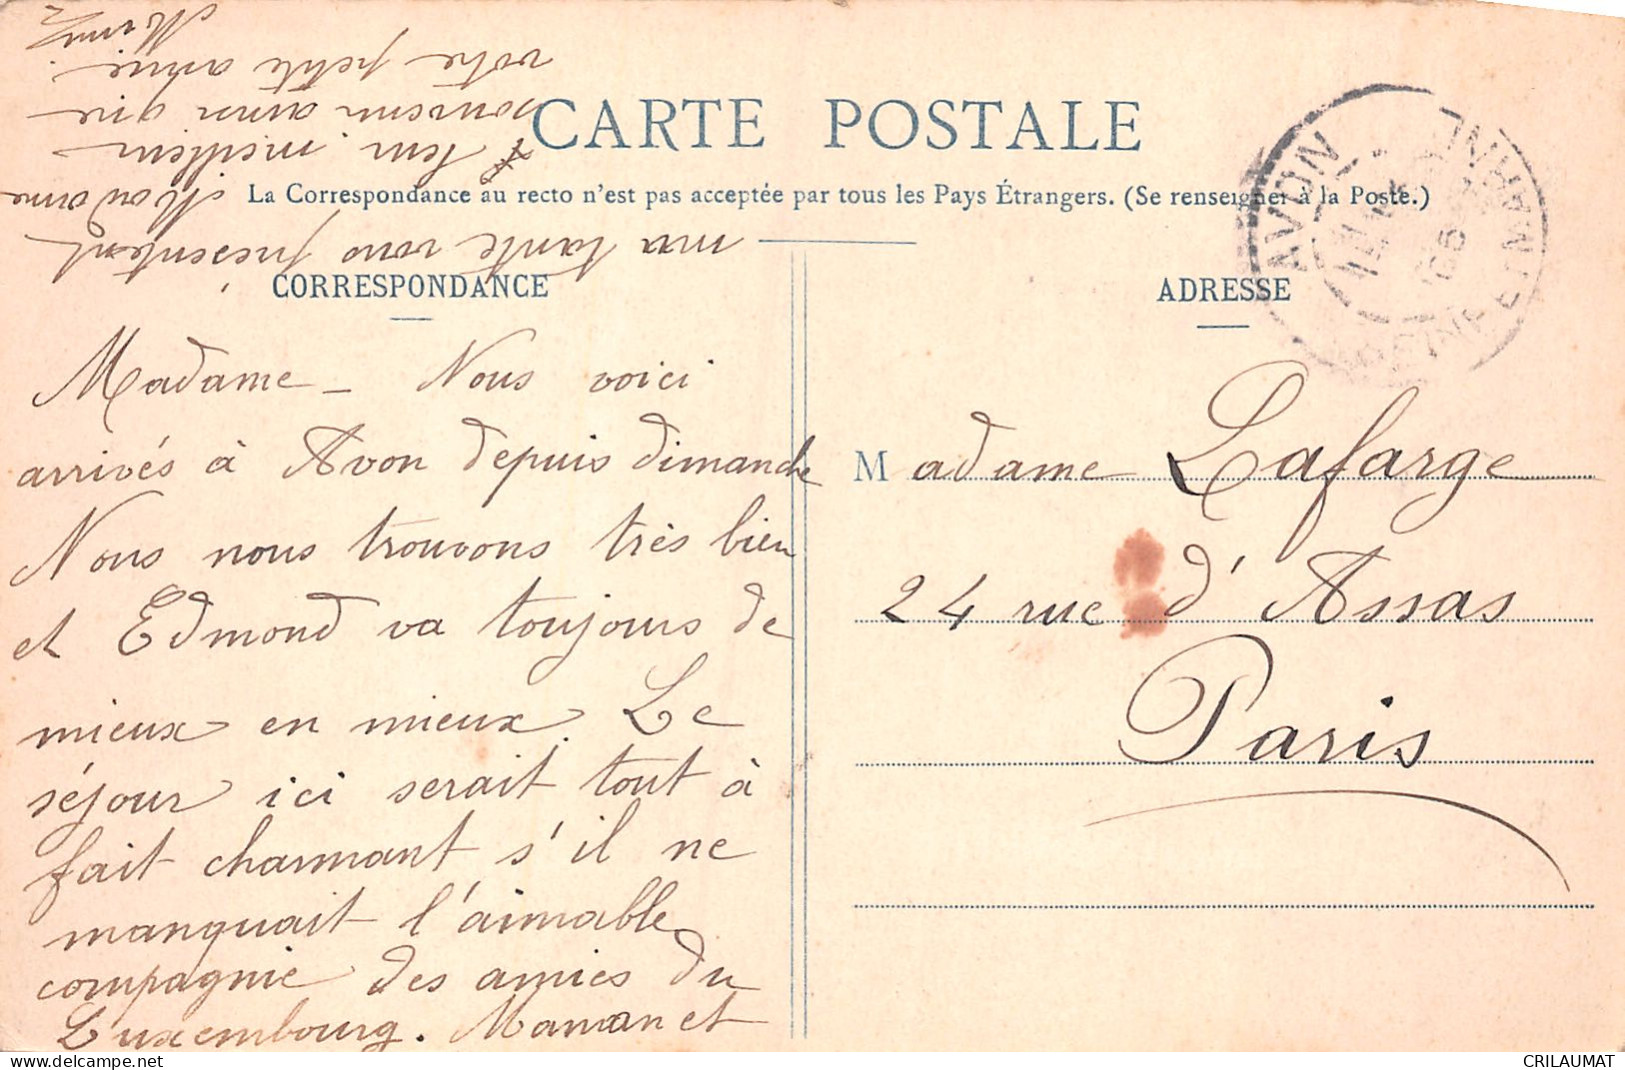 CARTE POSTALE
La Correspondance au recto n'est pas acceptée par tous les Pays Étrangers. (Se renseigner à la Poste.)
CORRESPONDANCE
Madame - Nous voici
arrivés à Avon depuis dimanche
Nous nous trouvons très bien
et Edmond va toujours de
mieux en mieux. Le
séjour ici serait tout à
fait charmant s'il ne
manquait l'aimable
compagnie des amies du
Luxembourg. Maman et
ma tante vous présentent
Madame
leur meilleur
souvenir ainsi que
votre petite amie
ADRESSE
AVON
SEINE ET MARNE
Madame Lafarge
24 rue d'Assas
Paris
delcampe.net
CRILAUMAT